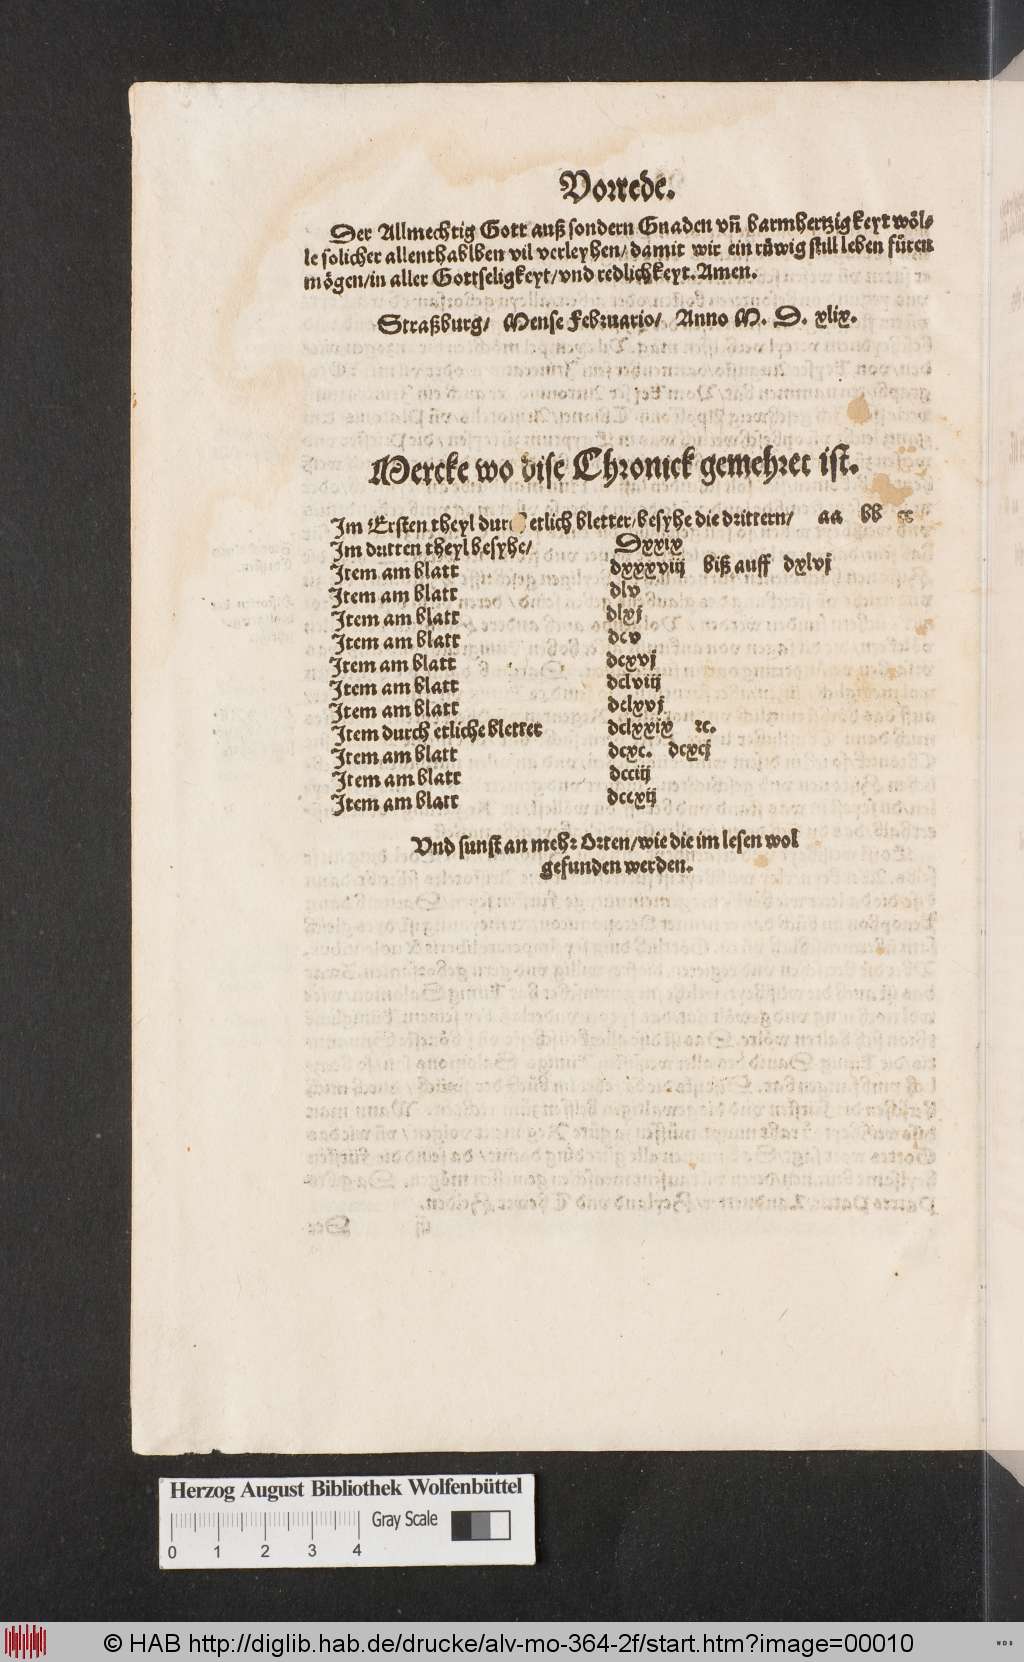 Vorrede.
Der Allmechtig Gott auß sondern Gnaden vn̄ barmhertzigkeyt wöl-
le solicher allenthablben vil verleyhen/ damit wir ein rüwig still leben füren
mögen/in aller Gottseligkeyt/vnd redlichkeyt. Amen.
Straßburg/ Mense Februario/ Anno M. D. xlix.
Mercke wo dise Chronick gemehret ist.
Im Ersten theyl durch etlich bletter/besyhe die drittern/ aa bb cc
Im dritten theyl besyhe/ Dxxix
Item am blatt dxxxviij biß auff dxlvj
Item am blatt dlv
Item am blatt dlxj
Item am blatt dcv
Item am blatt dcxvj
Item am blatt dclviij
Item am blatt dclxvj
Item durch etliche bletter dclxxix ꝛc.
Item am blatt dcxc. dcxcj
Item am blatt dcciij
Item am blatt dccxij
Vnd sunst an mehr Orten/wie die im lesen wol
gefunden werden.
Herzog August Bibliothek Wolfenbüttel
Gray Scale
0 1 2 3 4
© HAB http://diglib.hab.de/drucke/alv-mo-364-2f/start.htm?image=00010